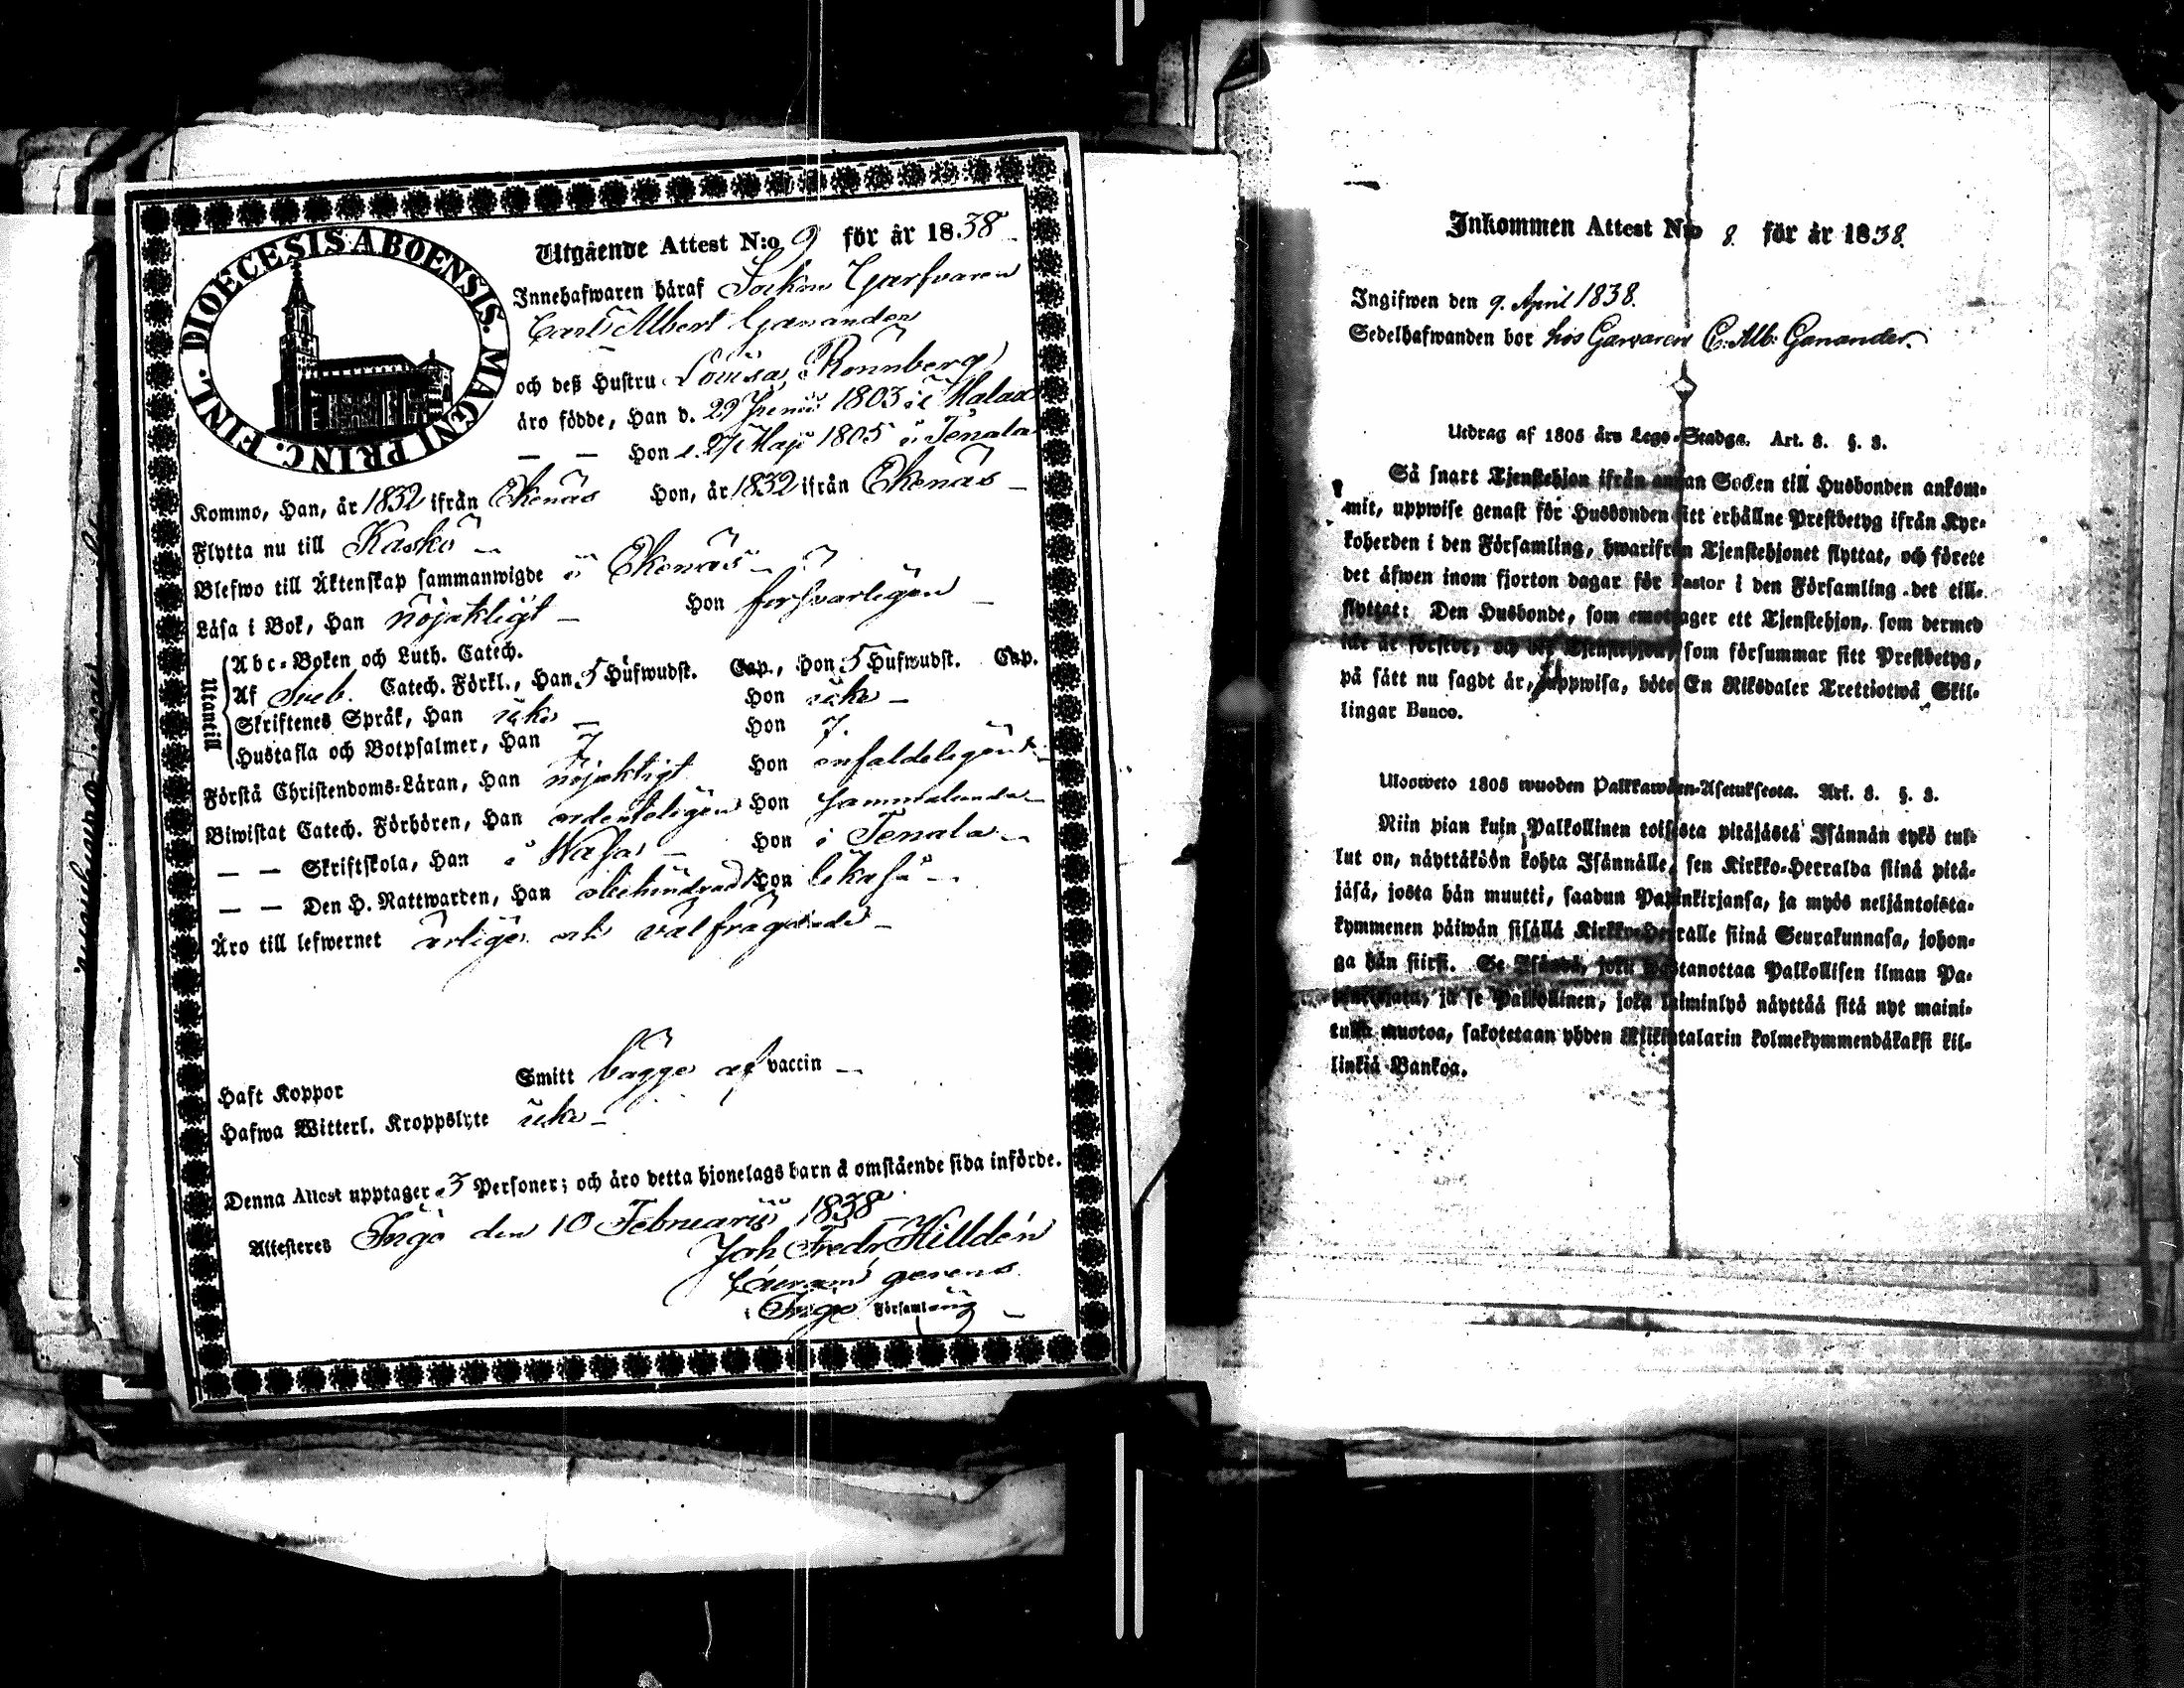 DIOECESIS ABOENSIS. MAGNI PRINC. FINL.
Utgående Attest N:o 9 för år 1838
Innehafwaren håraf Sockne Garfvaren
Carl Albert Ganander
och deß Hustru Lovisa Rönnberg
äro födde, Han d. 29 Junii 1803 i Malax
— — Hon d. 27 Maji 1805 i Tenala
Kommo, Han, år 1832 ifrån Ekenäs Hon, år 1832 ifrån Ekenäs
Flytta nu till Kaskö
Blefwo till Äktenskap sammanwigde i Ekenäs
Läsa i Bok, Han nöjaktligt Hon försvarligen
Utantill
Abc-Boken och Luth. Catech.
Af Sveb. Catech. Förkl., Han 5 Hufwudst. Cap., Hon 5 Hufwudst. Cap.
Skriftenes Språk, Han icke Hon icke
Hustafla och Botpsalmer, Han 7 Hon 7.
Förstå Christendoms-Läran, Han nöjaktligt Hon enfaldeligen
Biwistat Catech. Förhören, Han ordenteligen Hon sammaledes
— — Skriftskola, Han i Wasa Hon i Tenala
— — Den H. Nattwarden, Han obehindrad Hon lika så
Äro till lefwernet ärlige och välfrägdade
Haft Koppor Smitt bägge af vaccin
Hafwa Witterl. Kroppslyte icke
Denna Attest upptager 3 Personer; och äro detta hjonelags barn å omstående sida införde.
Attesteres Ingå den 10 Februarii 1838
Joh Fredr Hilldén
Curam gerens
i Ingå Församling
Inkommen Attest N:o 8 för år 1838.
Ingifwen den 9. April 1838.
Sedelhafwanden bor hos Garvaren C. Alb: Ganander.
Utdrag af 1805 års Lego-Stadga. Art. 3. §. 3.
Så snart Tjenstehjon ifrån annan Socken till Husbonden ankom-
mit, uppwise genast för Husbonden sitt erhållne Prestbetyg ifrån Kyr-
koherden i den Församling, hwarifrån Tjenstehjonet flyttat, och förete
det äfwen inom fjorton dagar för Pastor i den Församling det till-
flyttat: Den Husbonde, som emottager ett Tjenstehjon, som dermed
icke är försedt, och det Tjenstehjon, som försummar sitt Prestbetyg,
på sätt nu sagdt är, uppwisa, böte En Riksdaler Trettiotwå Skil-
lingar Banco.
Ulosweto 1805 wuoden Palkkawäen-Asetuksesta. Art. 3. §. 3.
Niin pian kuin Palkollinen toisesta pitäjästä Isännän tykö tul-
lut on, näyttäköön kohta Isännälle, sen Kirkko-Herralda siinä pitä-
jäsä, josta hän muutti, saadun Papinkirjansa, ja myös neljäntoista-
kymmenen päiwän sisällä Kirkko-Herralle siinä Seurakunnasa, johon-
ga hän siirsi. Se Isäntä, joka wastanottaa Palkollisen ilman Pa-
pinkirjata, ja se Palkollinen, joka laiminlyö näyttää sitä nyt maini-
tulla muotoa, sakotetaan yhden Riikintalarin kolmekymmendäkaksi kil-
linkiä Bankoa.